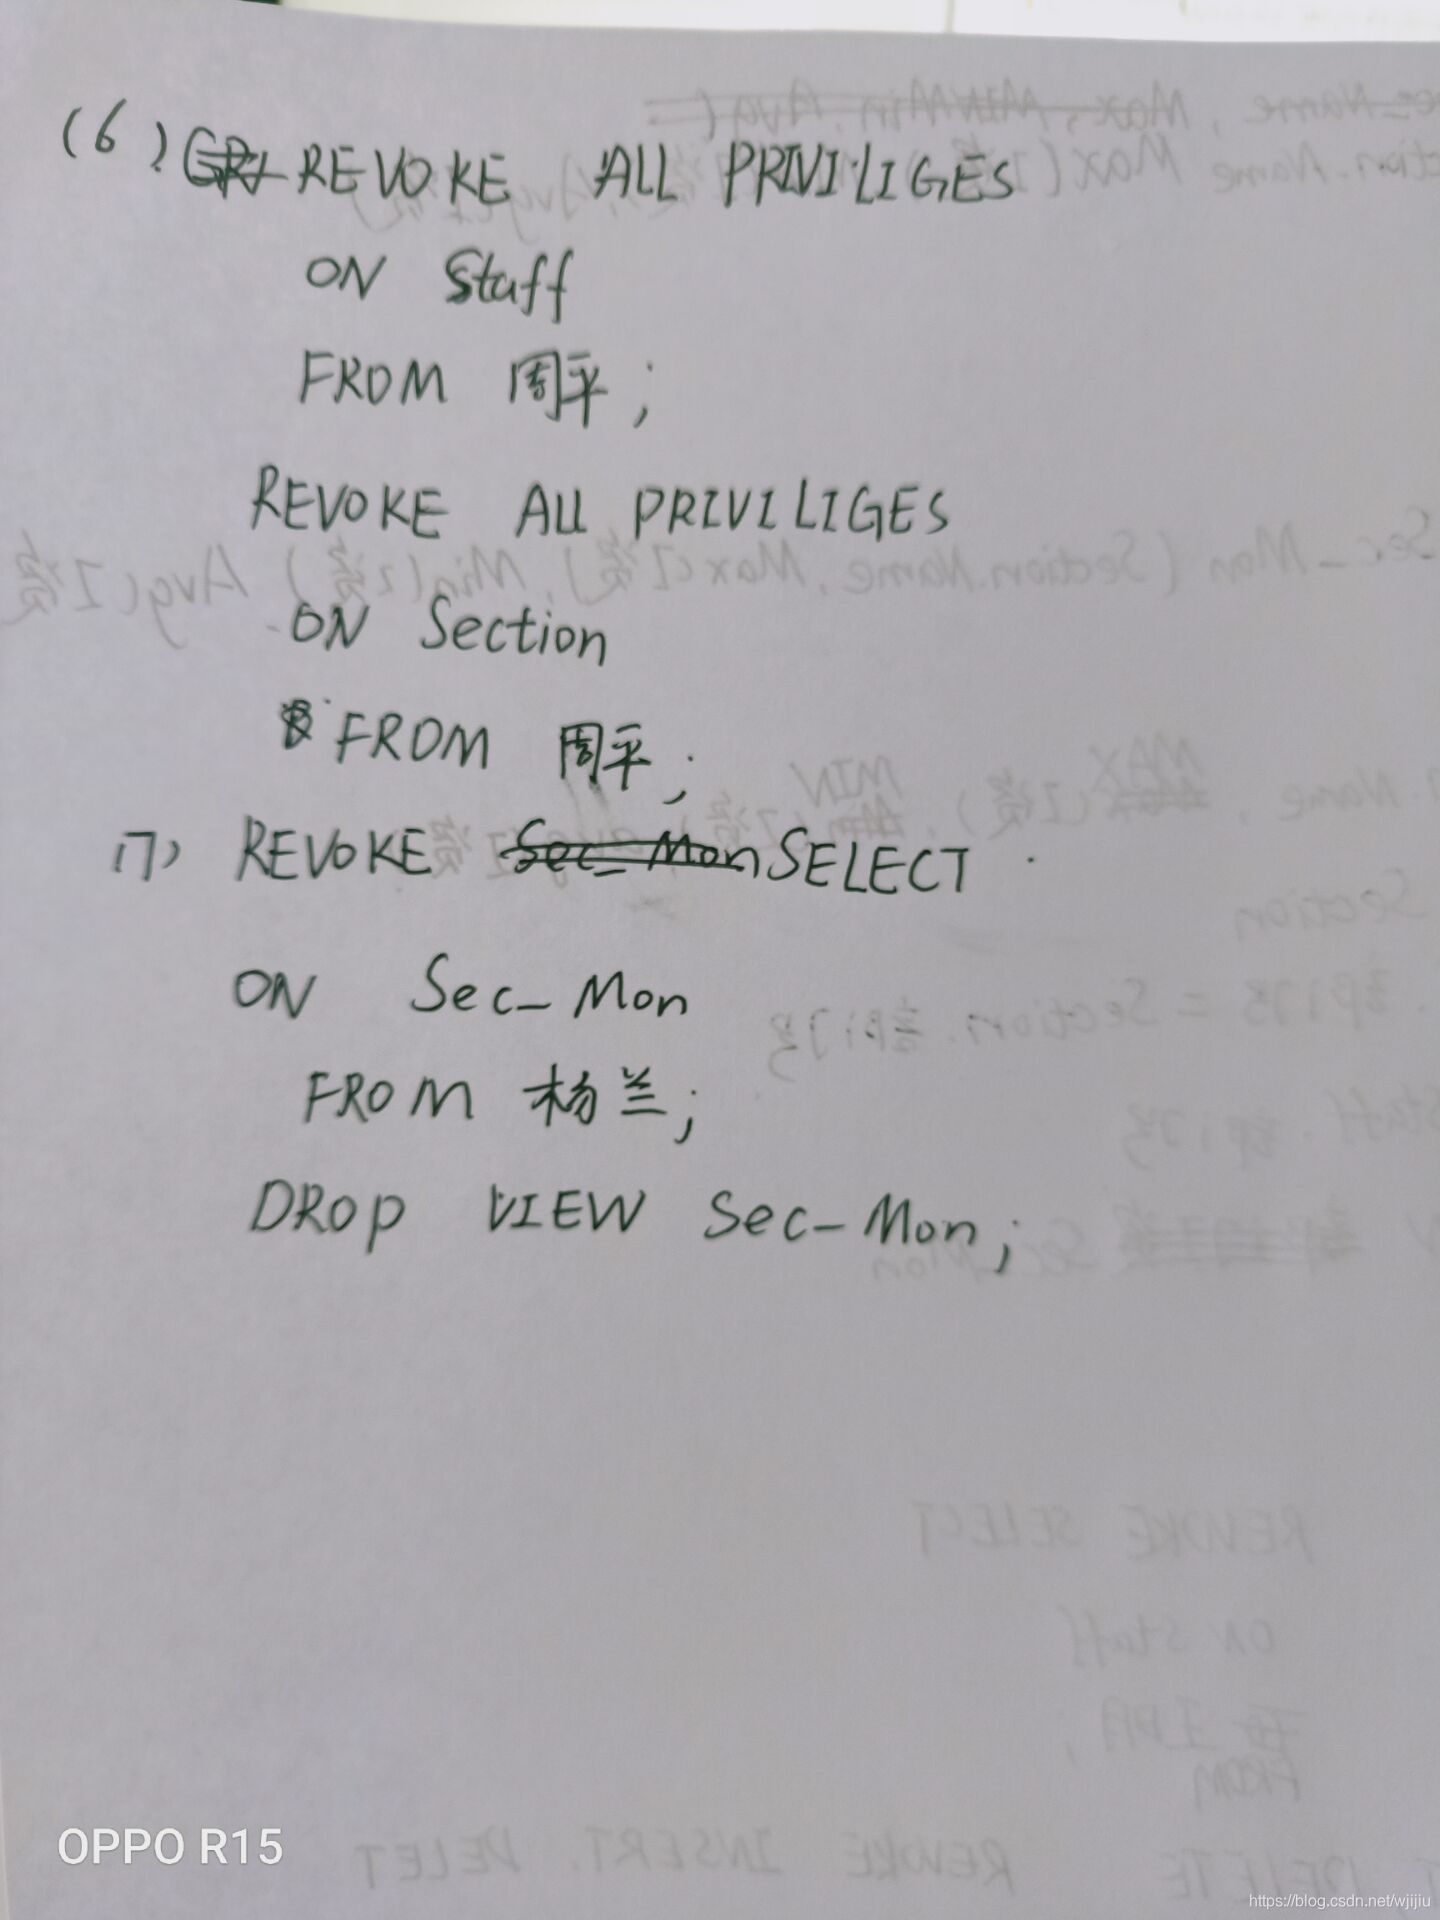 (6) REVOKE ALL PRIVILIGES
ON Staff
FROM 周平;
REVOKE ALL PRIVILIGES
ON Section
FROM 周平;
(7) REVOKE Sec_Mon SELECT
ON Sec_Mon
FROM 杨兰;
DROP VIEW Sec_Mon;
OPPO R15
https://blog.csdn.net/wjijiu